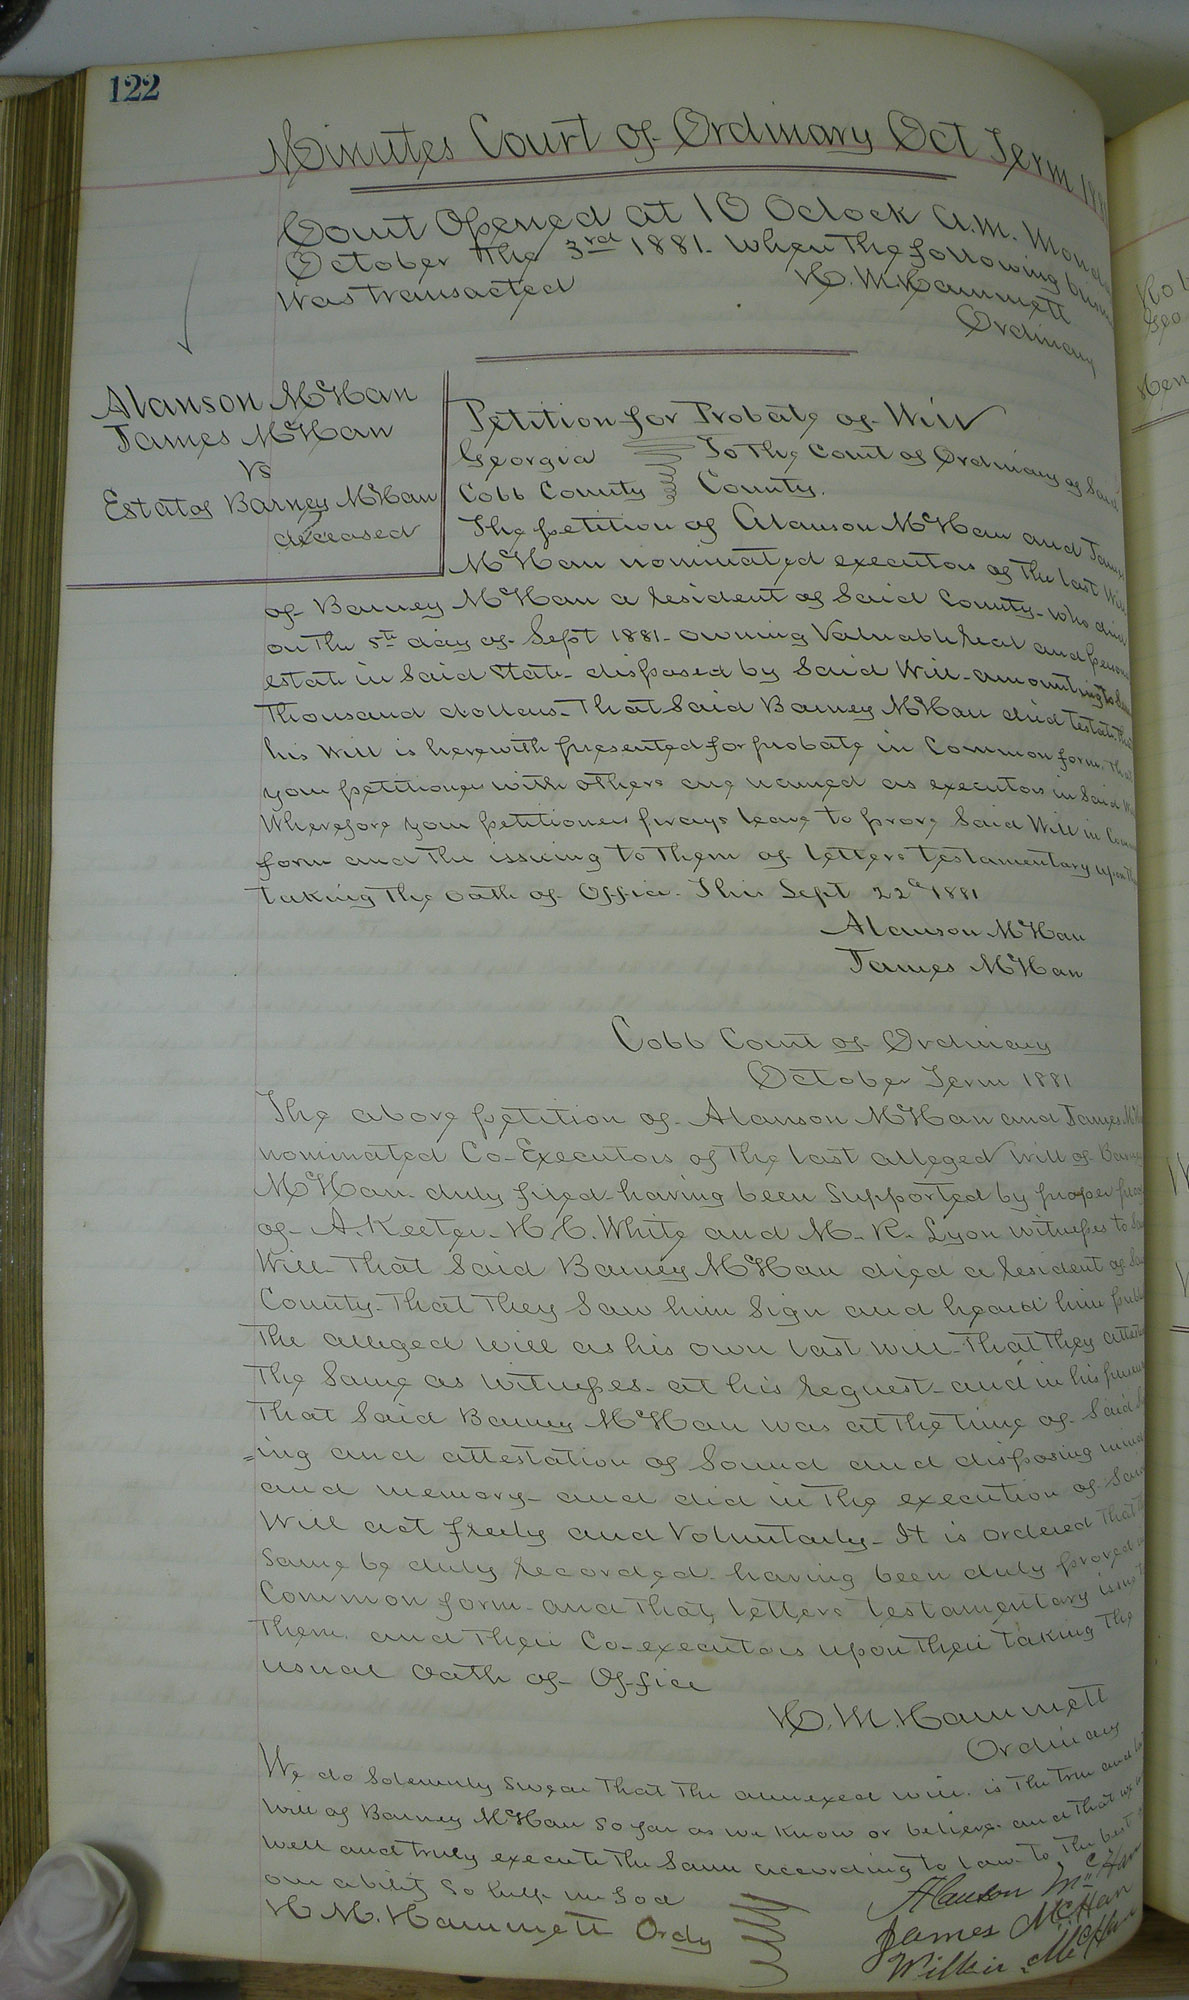 122
Minutes Court of Ordinary Oct Term
Court Opened at 10 Oclock A.M.
October the 3rd 1881. when the following
was transacted H. M. Hammett
Ordinary
Alanson McHan
James McHan
vs
Estat of Barney McHan
deceased
Petition for Probate of Will
Georgia To the Court of Ordinary of Said
Cobb County County.
The petition of Alanson McHan and James
McHan nominated executors of the last Will
of Barney McHan a resident of Said County who died
on the 5th day of Sept 1881 - owning Valuable real and
estate in Said State - disposed by Said Will - amounting to
thousand dollars - That Said Barney McHan died testate
his Will is herewith presented for probate in Common form
your petitioners with others are named as executors in Said
Wherefore your petitioners prays leave to prove Said Will in
form and the issuing to them of letters testamentary upon
taking the oath of Office. This Sept 22d 1881
Alanson McHan
James McHan
Cobb Court of Ordinary
October Term 1881
The above petition of Alanson McHan and James
nominated Co-Executors of the last alleged Will of
McHan - duly filed - having been Supported by proper
of A. Keeter - H. C. White and M. R. Lyon witnesses to
Will - That Said Barney McHan died a resident of
County - That They Saw him Sign and heard him
The alleged will as his own last will - That They
The Same as witnesses - at his request - and in his
That Said Barney McHan was at the time of Said
=ing and attestation of Sound and disposing mind
and memory - and did in the execution of Said
Will act freely and Voluntarily - It is ordered that
Same be duly recorded - having been duly proved
Common form - and that letters testamentary issue
them and their Co-executors upon their taking the
usual Oath of Office
H. M. Hammett
Ordinary
We do Solemnly Swear that the annexed will is the true and
will of Barney McHan So far as we Know or believe and that we
well and truly execute the Same according to law to the best
our ability So help us God
H. M. Hammett Ordy
Alanson McHan
James McHan
McHan